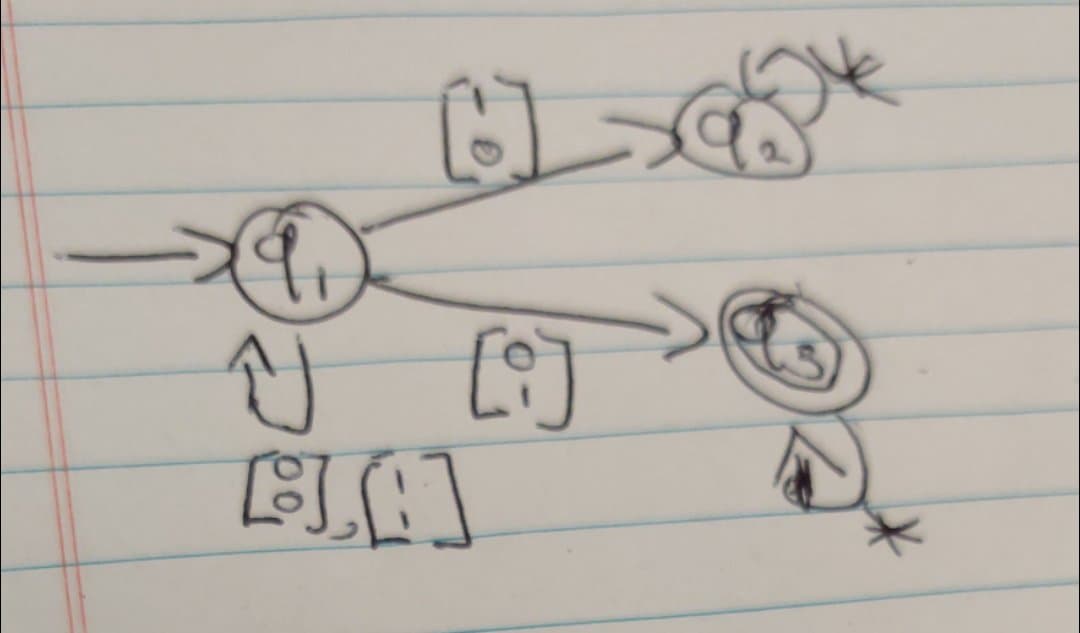 [1 0]
q2
*
q1
[0 1]
q3
[0 0], [1 1]
*